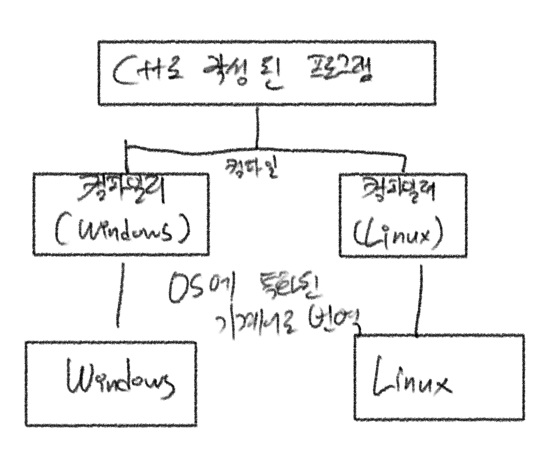 C++로 작성된 프로그램
컴파일
컴파일러
(Windows)
컴파일러
(Linux)
OS에 특화된
기계어로 번역
Windows
Linux